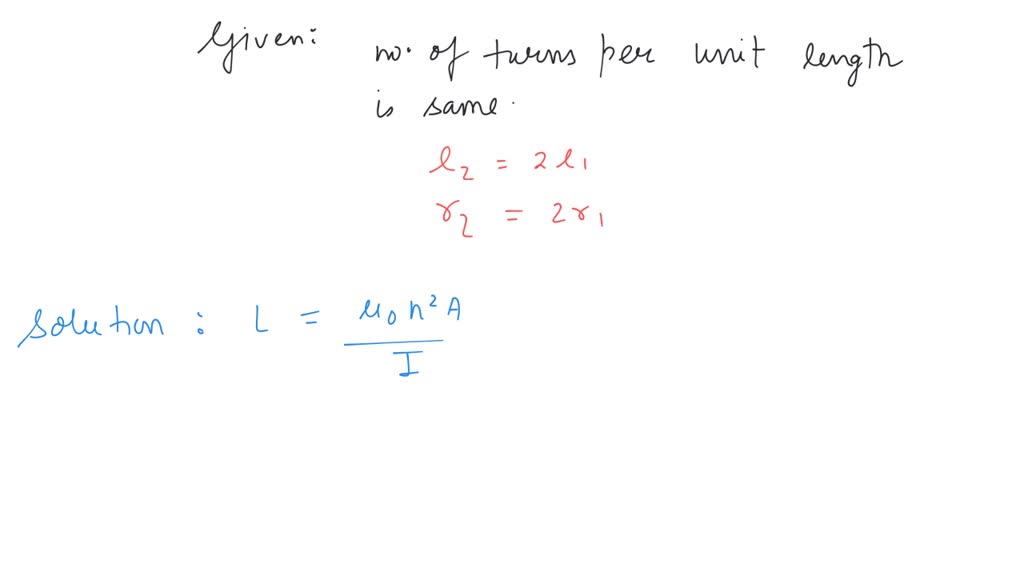 Given: no. of turns per unit length
is same.
l₂ = 2l₁
r₂ = 2r₁
Solution : L = μ₀n²A
I